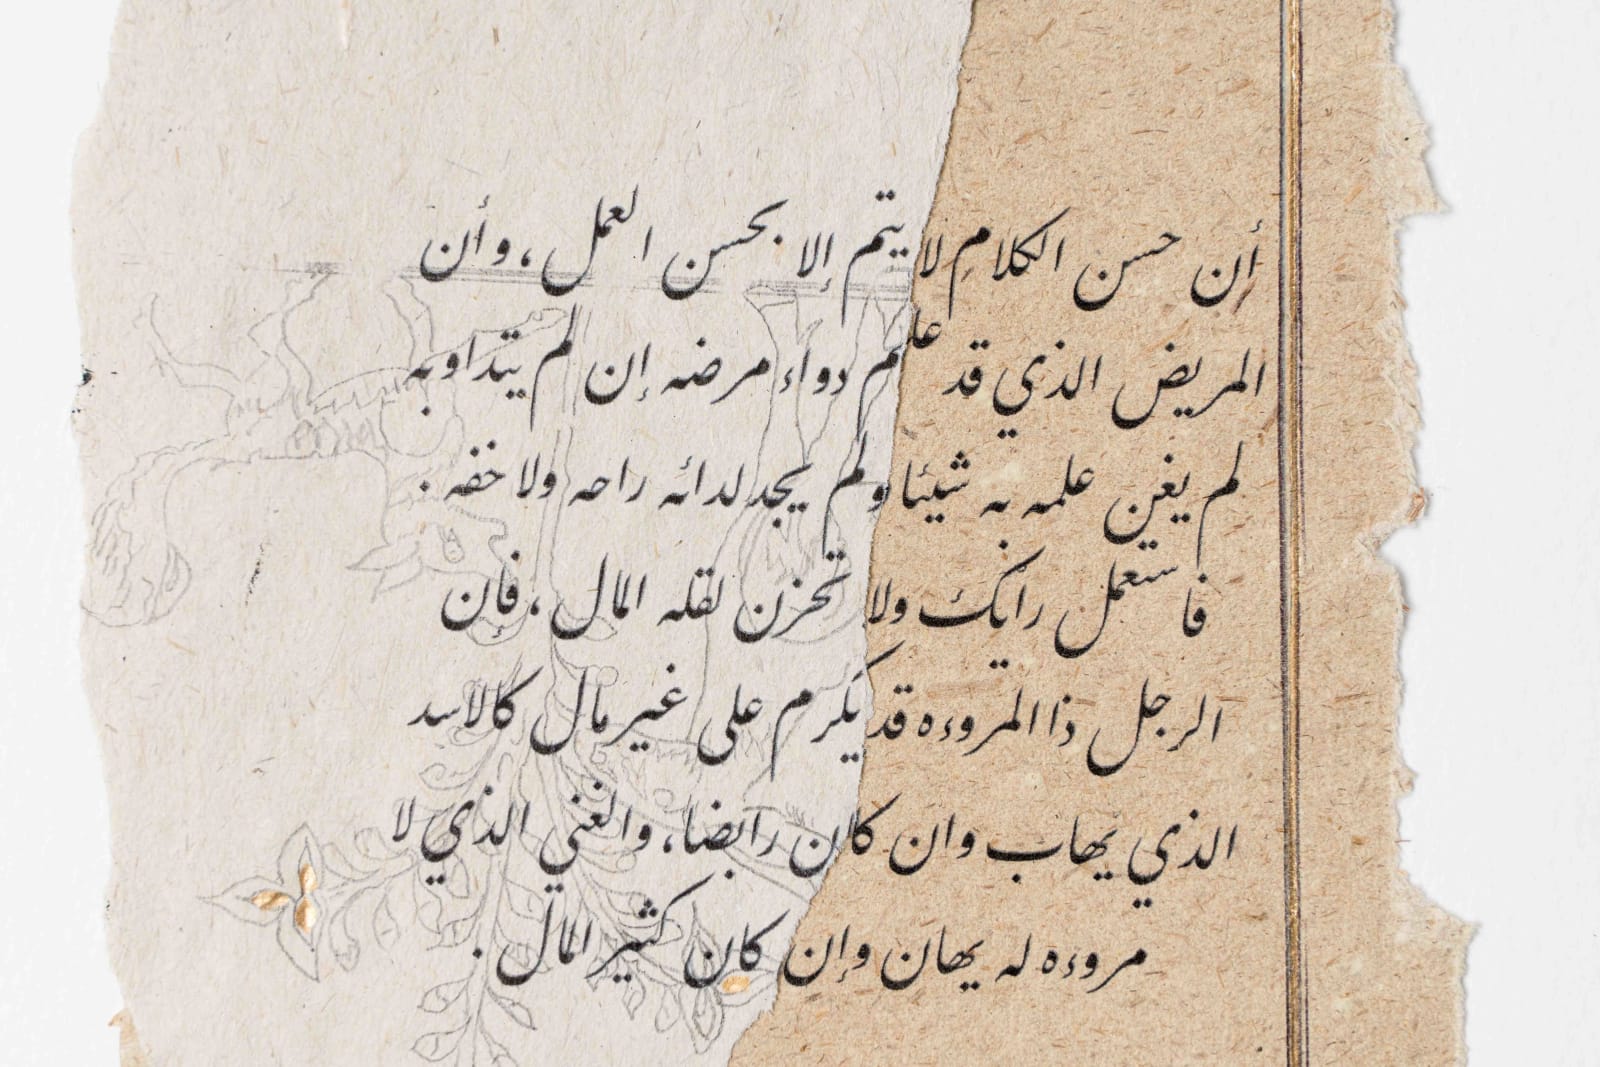 أن حسن الكلام لا يتم إلا بحسن العمل، وأن
المريض الذي قد علم دواء مرضه إن لم يتداو به
لم يغن علمه به شيئا ولم يجد لدائه راحه ولا خفه.
فاستعمل رأيك ولا تحزن لقله المال، فإن
الرجل ذا المروءه قد يكرم على غير مال كالاسد
الذي يهاب وان كان رابضا، والغني الذي لا
مروءه له يهان وإن كان كثير المال.